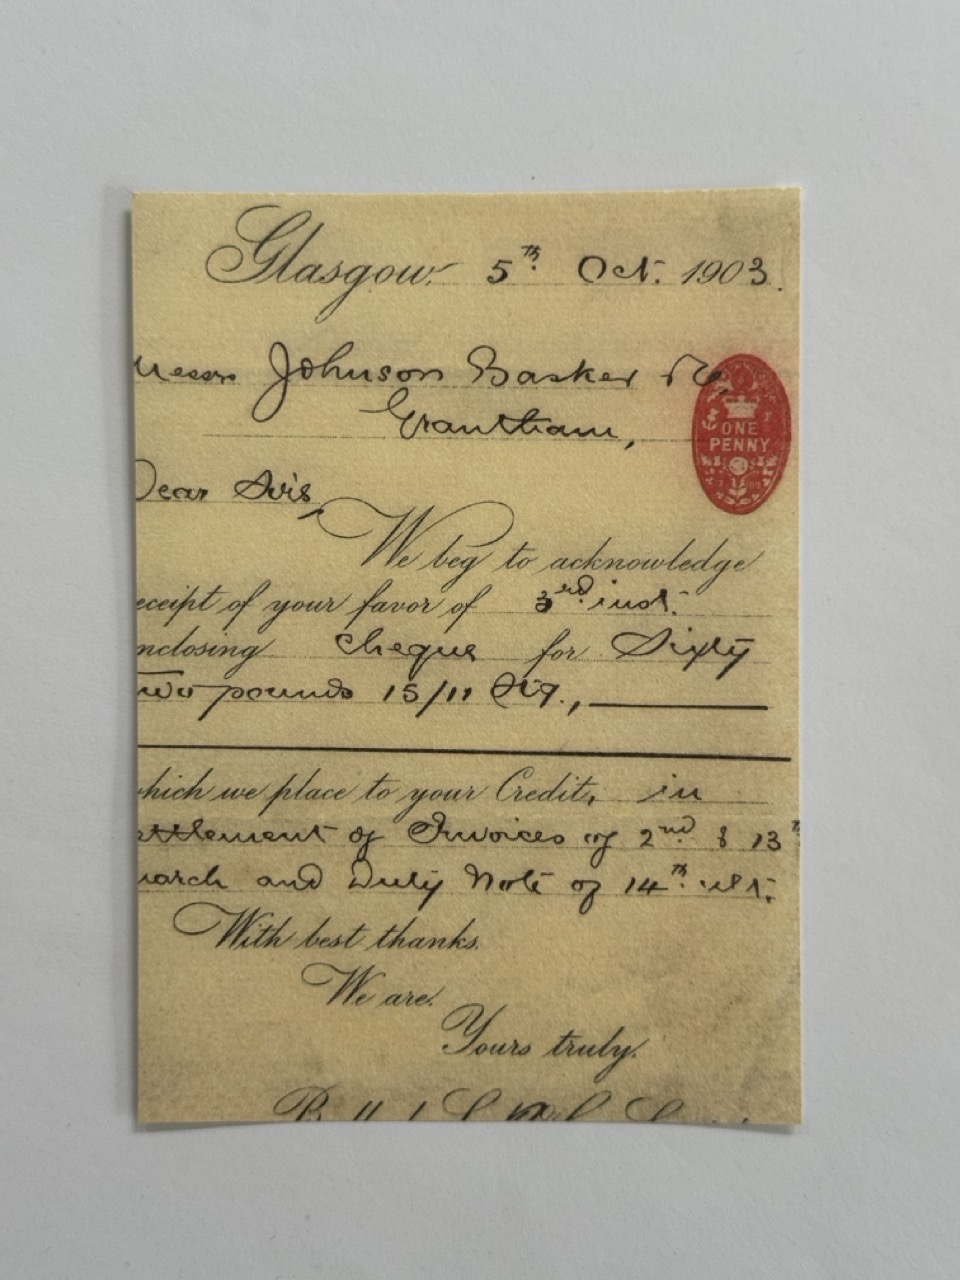 Glasgow. 5th Oct. 1903.
Messrs Johnson Basker & Co,
Grantham,
ONE
PENNY
Dear Sirs,
We beg to acknowledge
eceipt of your favor of 3rd inst.
nclosing cheque for Sixty
Two pounds 15/11 Stg.,
hich we place to your Credit, in
ettlement of Invoices of 2nd & 13th
arch and Duty Note of 14th ult.
With best thanks.
We are.
Yours truly.